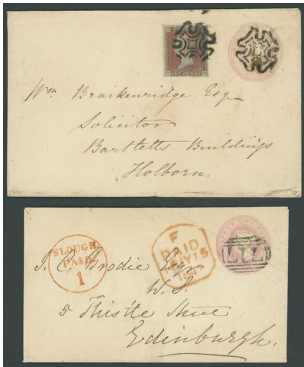 Wm Braikenridge Esq
Solicitor
Bartletts Buildings
Holborn.
SLOUGH
PAID
1
F
PAID
J. C. Brodie Esqr
W. S.
5 Thistle Street
Edinburgh.